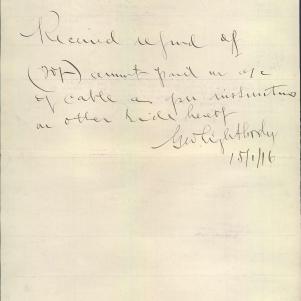 Received refund of
(70/-) amount paid on a/c
of cable as per instructions
on other side hereof
Geo Lightbody
15/1/16